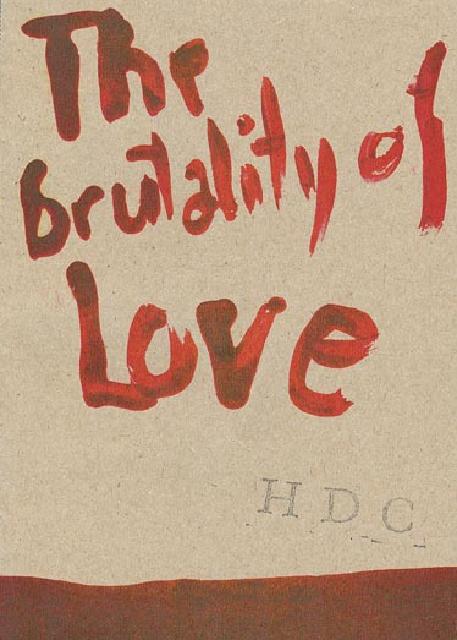 The
brutality of
Love
HDC